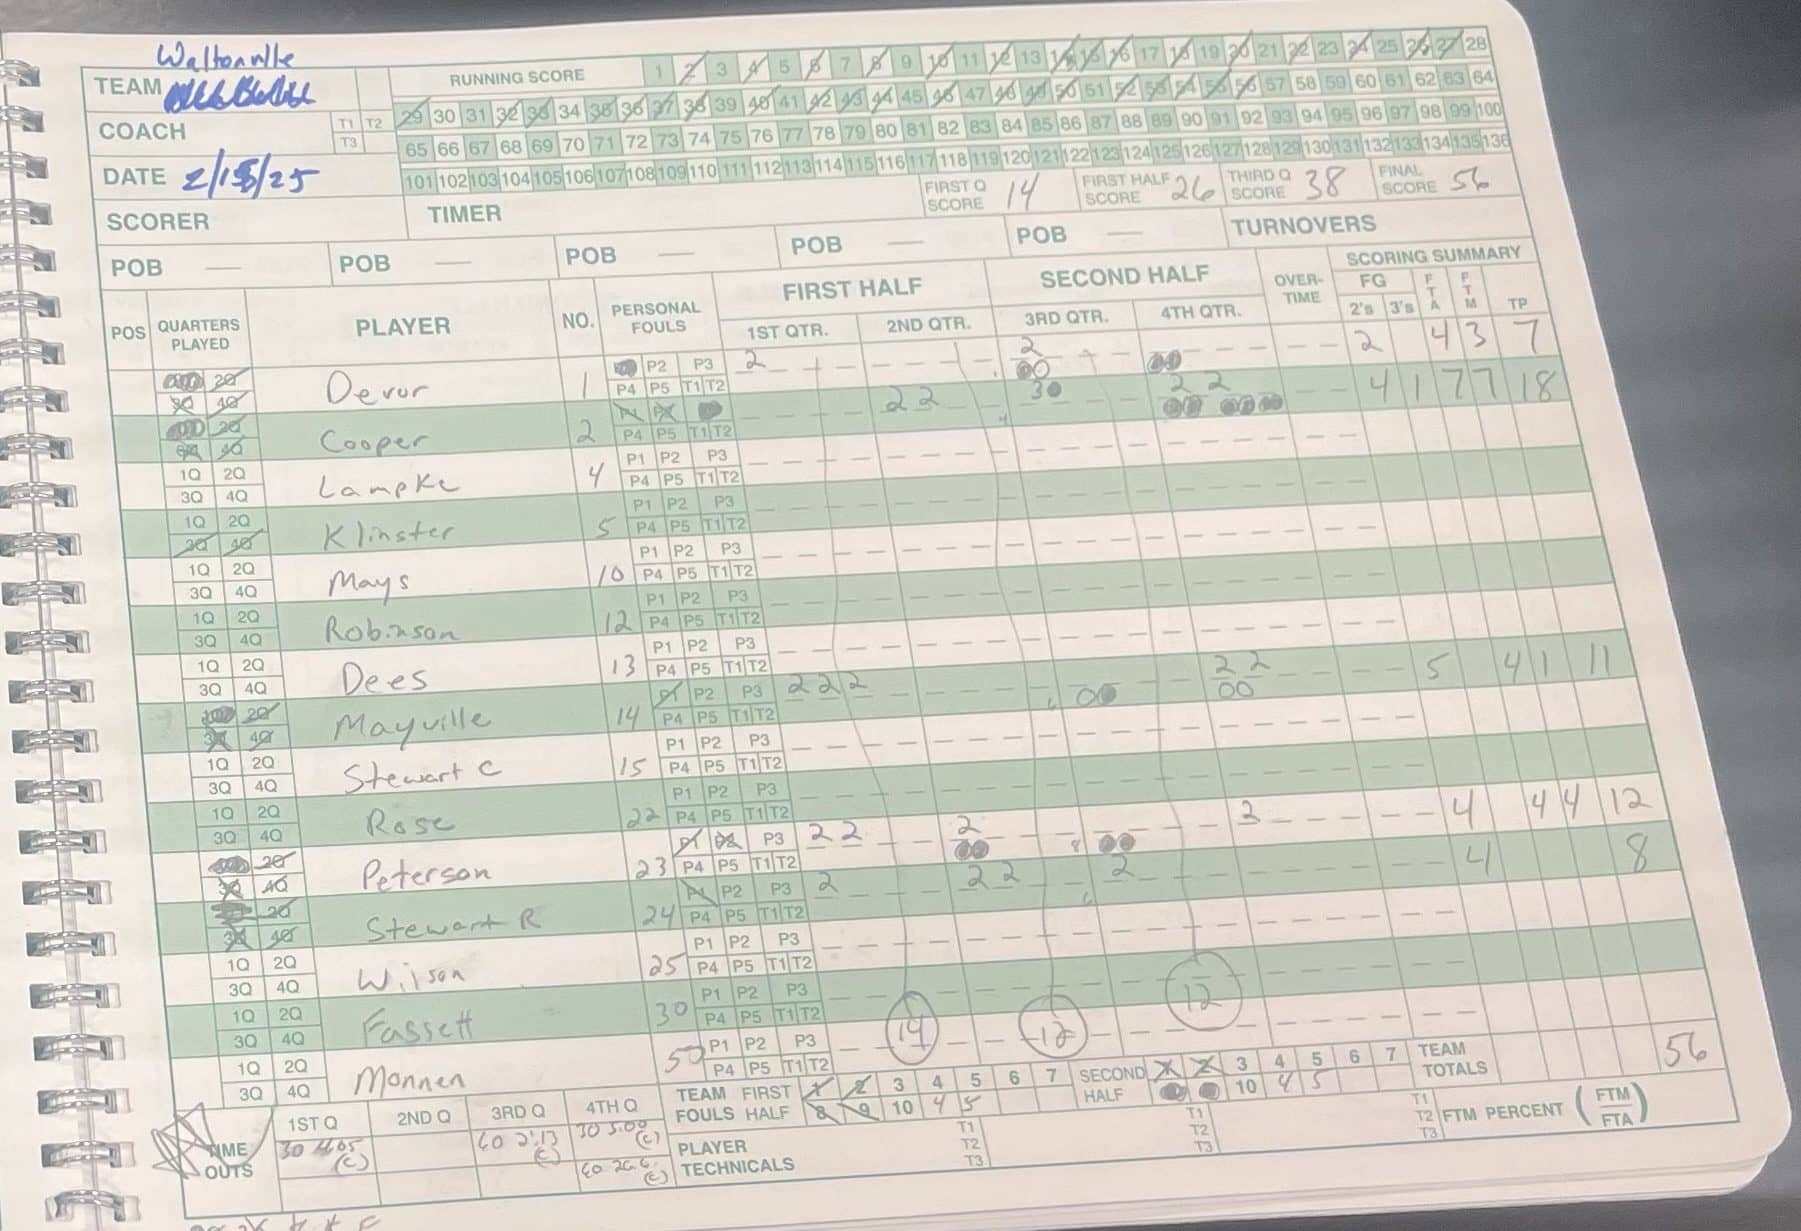 Waltonville
TEAM
RUNNING SCORE 1 2 3 4 5 6 7 8 9 10 11 12 13 14 15 16 17 18 19 20 21 22 23 24 25 26 27 28
29 30 31 32 33 34 35 36 37 38 39 40 41 42 43 44 45 46 47 48 49 50 51 52 53 54 55 56 57 58 59 60 61 62 63 64
COACH T1 T2 T3
65 66 67 68 69 70 71 72 73 74 75 76 77 78 79 80 81 82 83 84 85 86 87 88 89 90 91 92 93 94 95 96 97 98 99 100
DATE 2/15/25
101 102 103 104 105 106 107 108 109 110 111 112 113 114 115 116 117 118 119 120 121 122 123 124 125 126 127 128 129 130 131 132 133 134 135 136
SCORER TIMER FIRST Q SCORE 14 FIRST HALF SCORE 26 THIRD Q SCORE 38 FINAL SCORE 56
POB — POB — POB — POB — POB — TURNOVERS
POS QUARTERS PLAYED PLAYER NO. PERSONAL FOULS FIRST HALF SECOND HALF OVER-TIME SCORING SUMMARY
1ST QTR. 2ND QTR. 3RD QTR. 4TH QTR. FG 2's 3's FTA FTM TP
2Q P2 P3 2 2 00 2 4 3 7
3Q 4Q Devor 1 P4 P5 T1 T2
2Q P1 P2 2 2 3 2 2 4 1 7 7 18
3Q 4Q Cooper 2 P4 P5 T1 T2
1Q 2Q P1 P2 P3
3Q 4Q Lampke 4 P4 P5 T1 T2
1Q 2Q P1 P2 P3
3Q 4Q Klinster 5 P4 P5 T1 T2
1Q 2Q P1 P2 P3
3Q 4Q Mays 10 P4 P5 T1 T2
1Q 2Q P1 P2 P3
3Q 4Q Robinson 12 P4 P5 T1 T2
1Q 2Q P1 P2 P3
3Q 4Q Dees 13 P4 P5 T1 T2
2Q P1 P2 P3 2 2 2 2 2 00 5 4 1 11
3Q 4Q Mayville 14 P4 P5 T1 T2
1Q 2Q P1 P2 P3
3Q 4Q Stewart C 15 P4 P5 T1 T2
1Q 2Q P1 P2 P3
3Q 4Q Rose 22 P4 P5 T1 T2
2Q P1 P2 P3 2 2 2 2 4 4 4 12
3Q 4Q Peterson 23 P4 P5 T1 T2
2Q P1 P2 P3 2 2 2 2 4 8
3Q 4Q Stewart R 24 P4 P5 T1 T2
1Q 2Q P1 P2 P3
3Q 4Q Wilson 25 P4 P5 T1 T2
1Q 2Q P1 P2 P3
3Q 4Q Fassett 30 P4 P5 T1 T2
1Q 2Q P1 P2 P3 14 12 12
3Q 4Q Monnen 50 P4 P5 T1 T2
TEAM FOULS FIRST HALF 1 2 3 4 5 6 7 SECOND HALF 1 2 3 4 5 6 7 TEAM TOTALS 56
8 9 10 4 5 10 4 5
TIME OUTS 1ST Q 2ND Q 3RD Q 4TH Q
30 4:05 (C) 60 2:13 (C) 30 5:00 (C)
60 (C)
PLAYER TECHNICALS T1 T2 T3 T1 T2 T3 T1 T2 T3 FTM PERCENT (FTM/FTA)